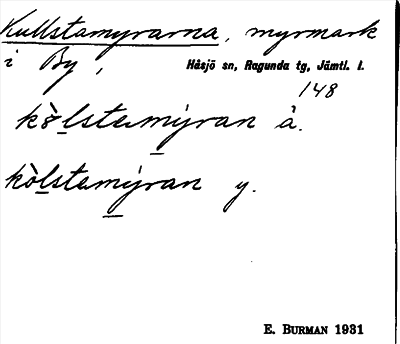 Kullstamyrarna, myrmark
i By, Håsjö sn, Ragunda tg, Jämtl. l.
148
kòlstamyran ä.
kòlstamyran y.
E. BURMAN 1931